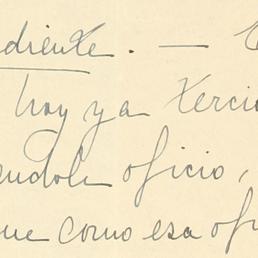 diente. —
hoy ya Xerci
endole oficio,
ue como esa ofi